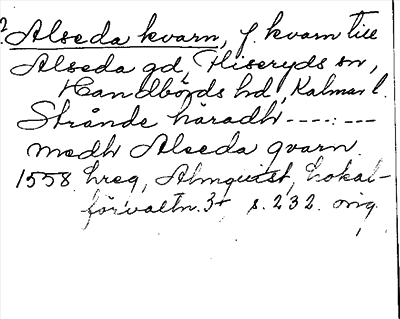 ? Alseda kvarn, f. kvarn till
Alseda gd, Hiseryds sn,
Handbörds hd, Kalmar l.
Strånde häradh ----:---
medh Alseda qvarn
1558 hreg, Almquist, Lokal-
förvaltn. 3: s. 232. orig.